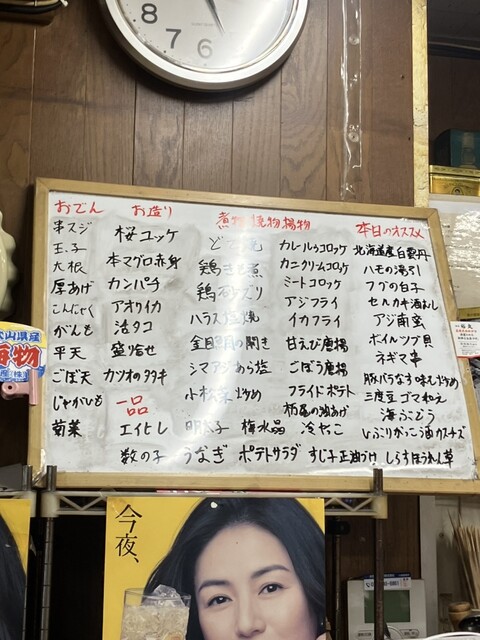 8 7 6 5
おでん
串スジ
玉子
大根
厚あげ
こんにゃく
がんも
平天
ごぼ天
じゃがいも
菊菜
お造り
桜ユッケ
本マグロ赤身
カンパチ
アオリイカ
活タコ
盛り合せ
カツオのタタキ
一品
エイヒレ
数の子
煮物 焼物 揚物
どて焼
鶏きも煮
鶏砂ズリ
ハラス塩焼
金目鯛の開き
シマアジあら塩
小松菜炒め
明太子
うなぎ
梅水晶
ポテトサラダ
カレールゥコロッケ
カニクリームコロッケ
ミートコロッケ
アジフライ
イカフライ
甘えび唐揚
ごぼう唐揚
フライドポテト
栃尾の油あげ
冷やっこ
すじ子正油づけ
本日のオススメ
北海道産白雲丹
ハモの湯引
フグの白子
セルカキ酒むし
アジ南蛮
ボイルツブ貝
ネギマ串
豚バラなす味そ炒め
三度豆ゴマ和え
海ぶどう
いぶりがっこ酒カスチーズ
しらすほうれん草
山県産
海物
今夜、